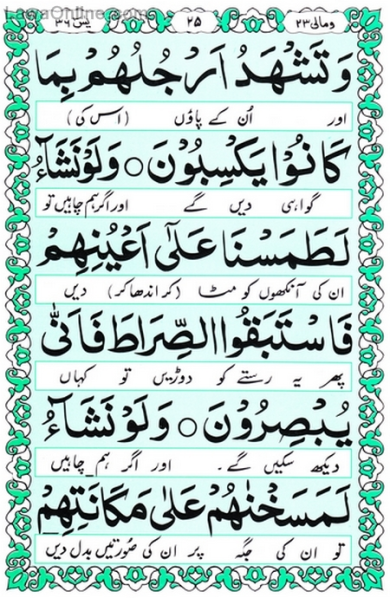 ومالی ۲۳ ۲۵ یٰس ۳۶
وَتَشْهَدُ اَرْجُلُهُمْ بِمَا
اور ان کے پاؤں (اس کی)
كَانُوْا يَكْسِبُوْنَ ○ وَلَوْ نَشَآءُ
گواہی دیں گے اور اگر ہم چاہیں تو
لَطَمَسْنَا عَلٰٓى اَعْيُنِهِمْ
ان کی آنکھوں کو مٹا (کر اندھا کر) دیں
فَاسْتَبَقُوا الصِّرَاطَ فَاَنّٰى
پھر یہ رستے کو دوڑیں تو کہاں
يُبْصِرُوْنَ ○ وَلَوْ نَشَآءُ
دیکھ سکیں گے۔ اور اگر ہم چاہیں
لَمَسَخْنٰهُمْ عَلٰى مَكَانَتِهِمْ
تو ان کی جگہ پر ان کی صورتیں بدل دیں